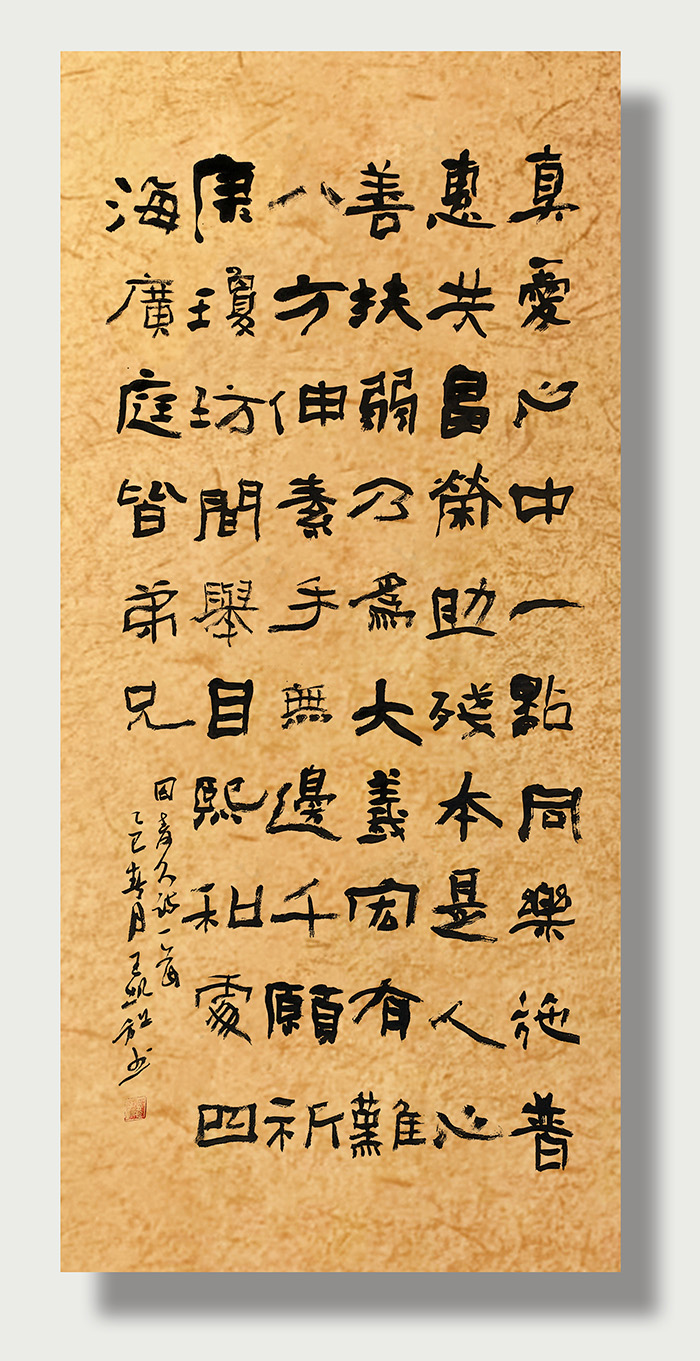 真愛心中一點同樂施普
惠共昌榮助殘本是人心
善扶弱乃爲大義宏有難
八方伸素手無邊千願祈
康瓊坊間舉目熙和處四
海廣庭皆弟兄
田久詩一首
乙巳春月王凱書